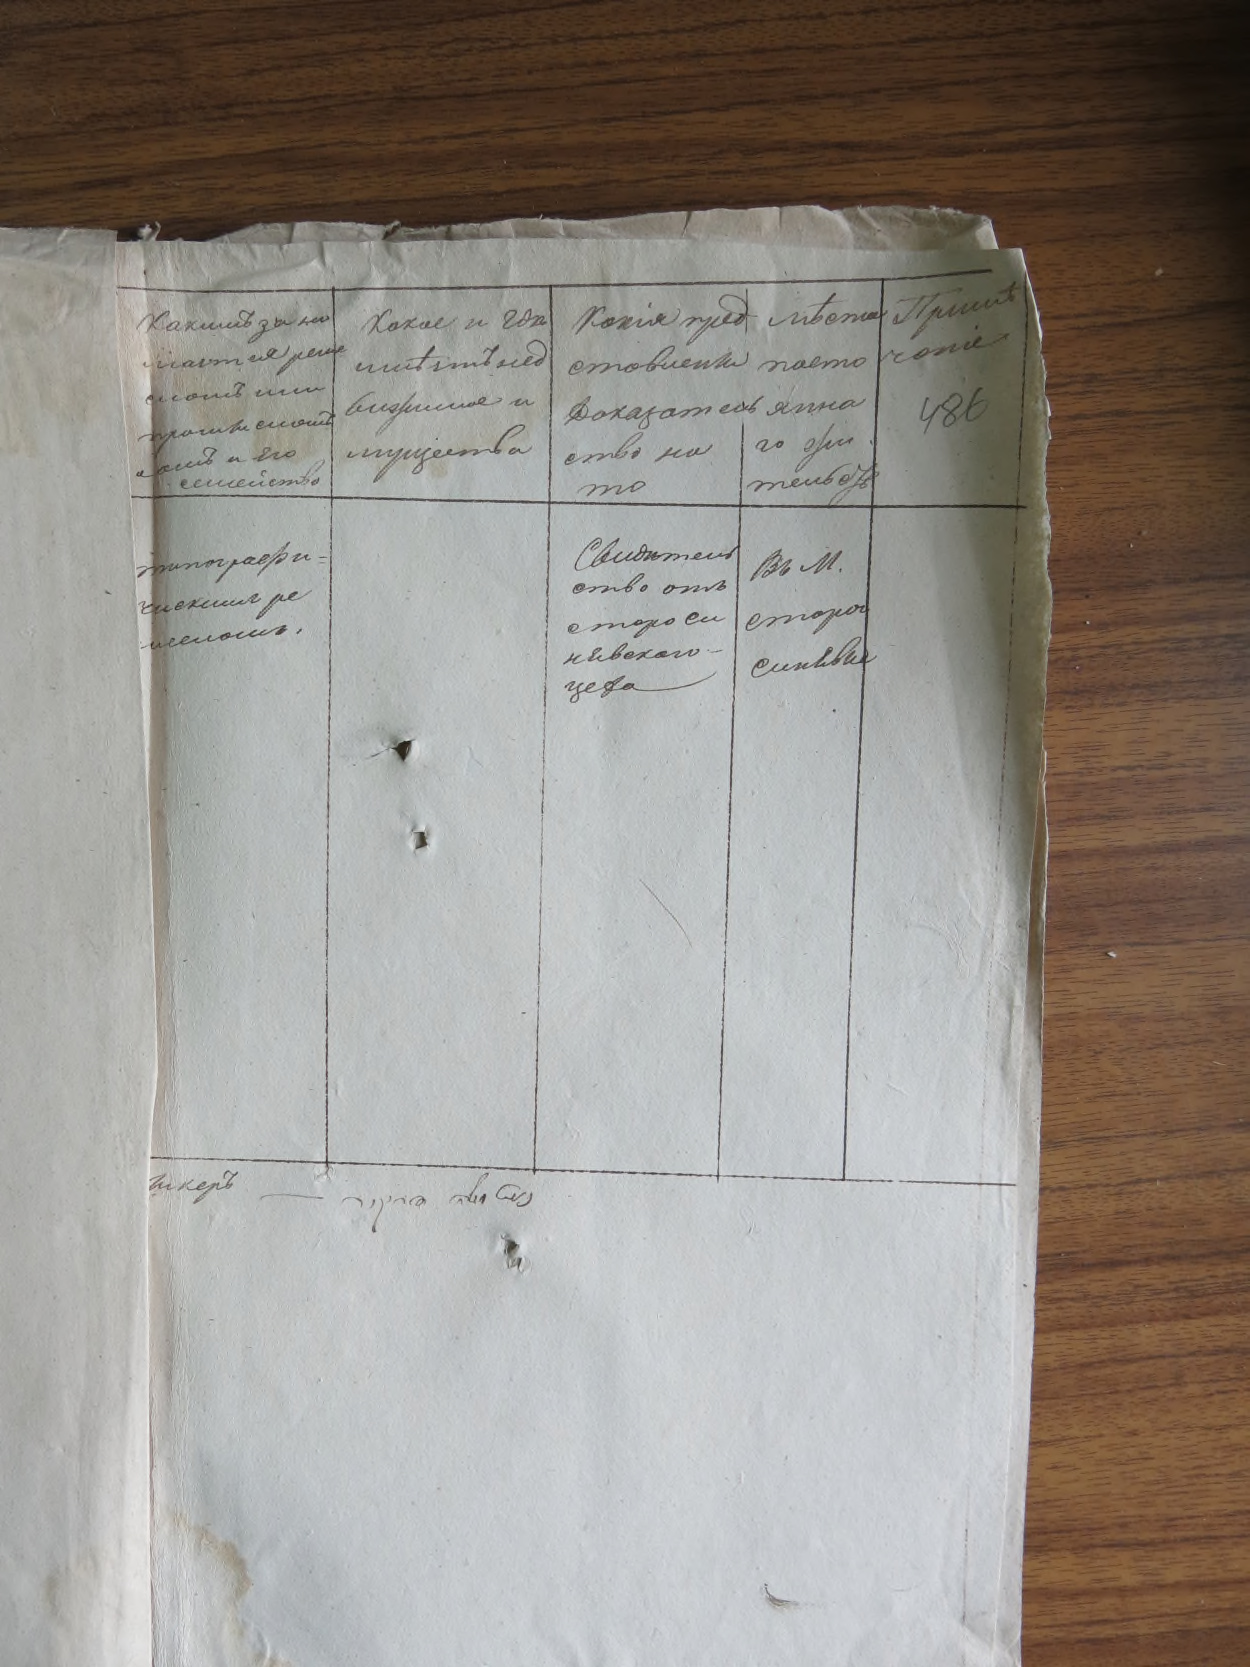 Какимъ зани
мается реме
сломъ или
промысломъ
самъ и его
семейство
Какое и гдѣ
имѣетъ нед
вижимое и
мущества
Какія пред
ставлены
доказатель
ство на
то
мѣста
посто
яннa
го жи
тельства
Примѣ
чаніе
486
типографи-
ческимъ ре
месломъ.
Свидѣтель
ство отъ
старо си
нявского
цеха
Въ М.
старой
синявке
икеръ —